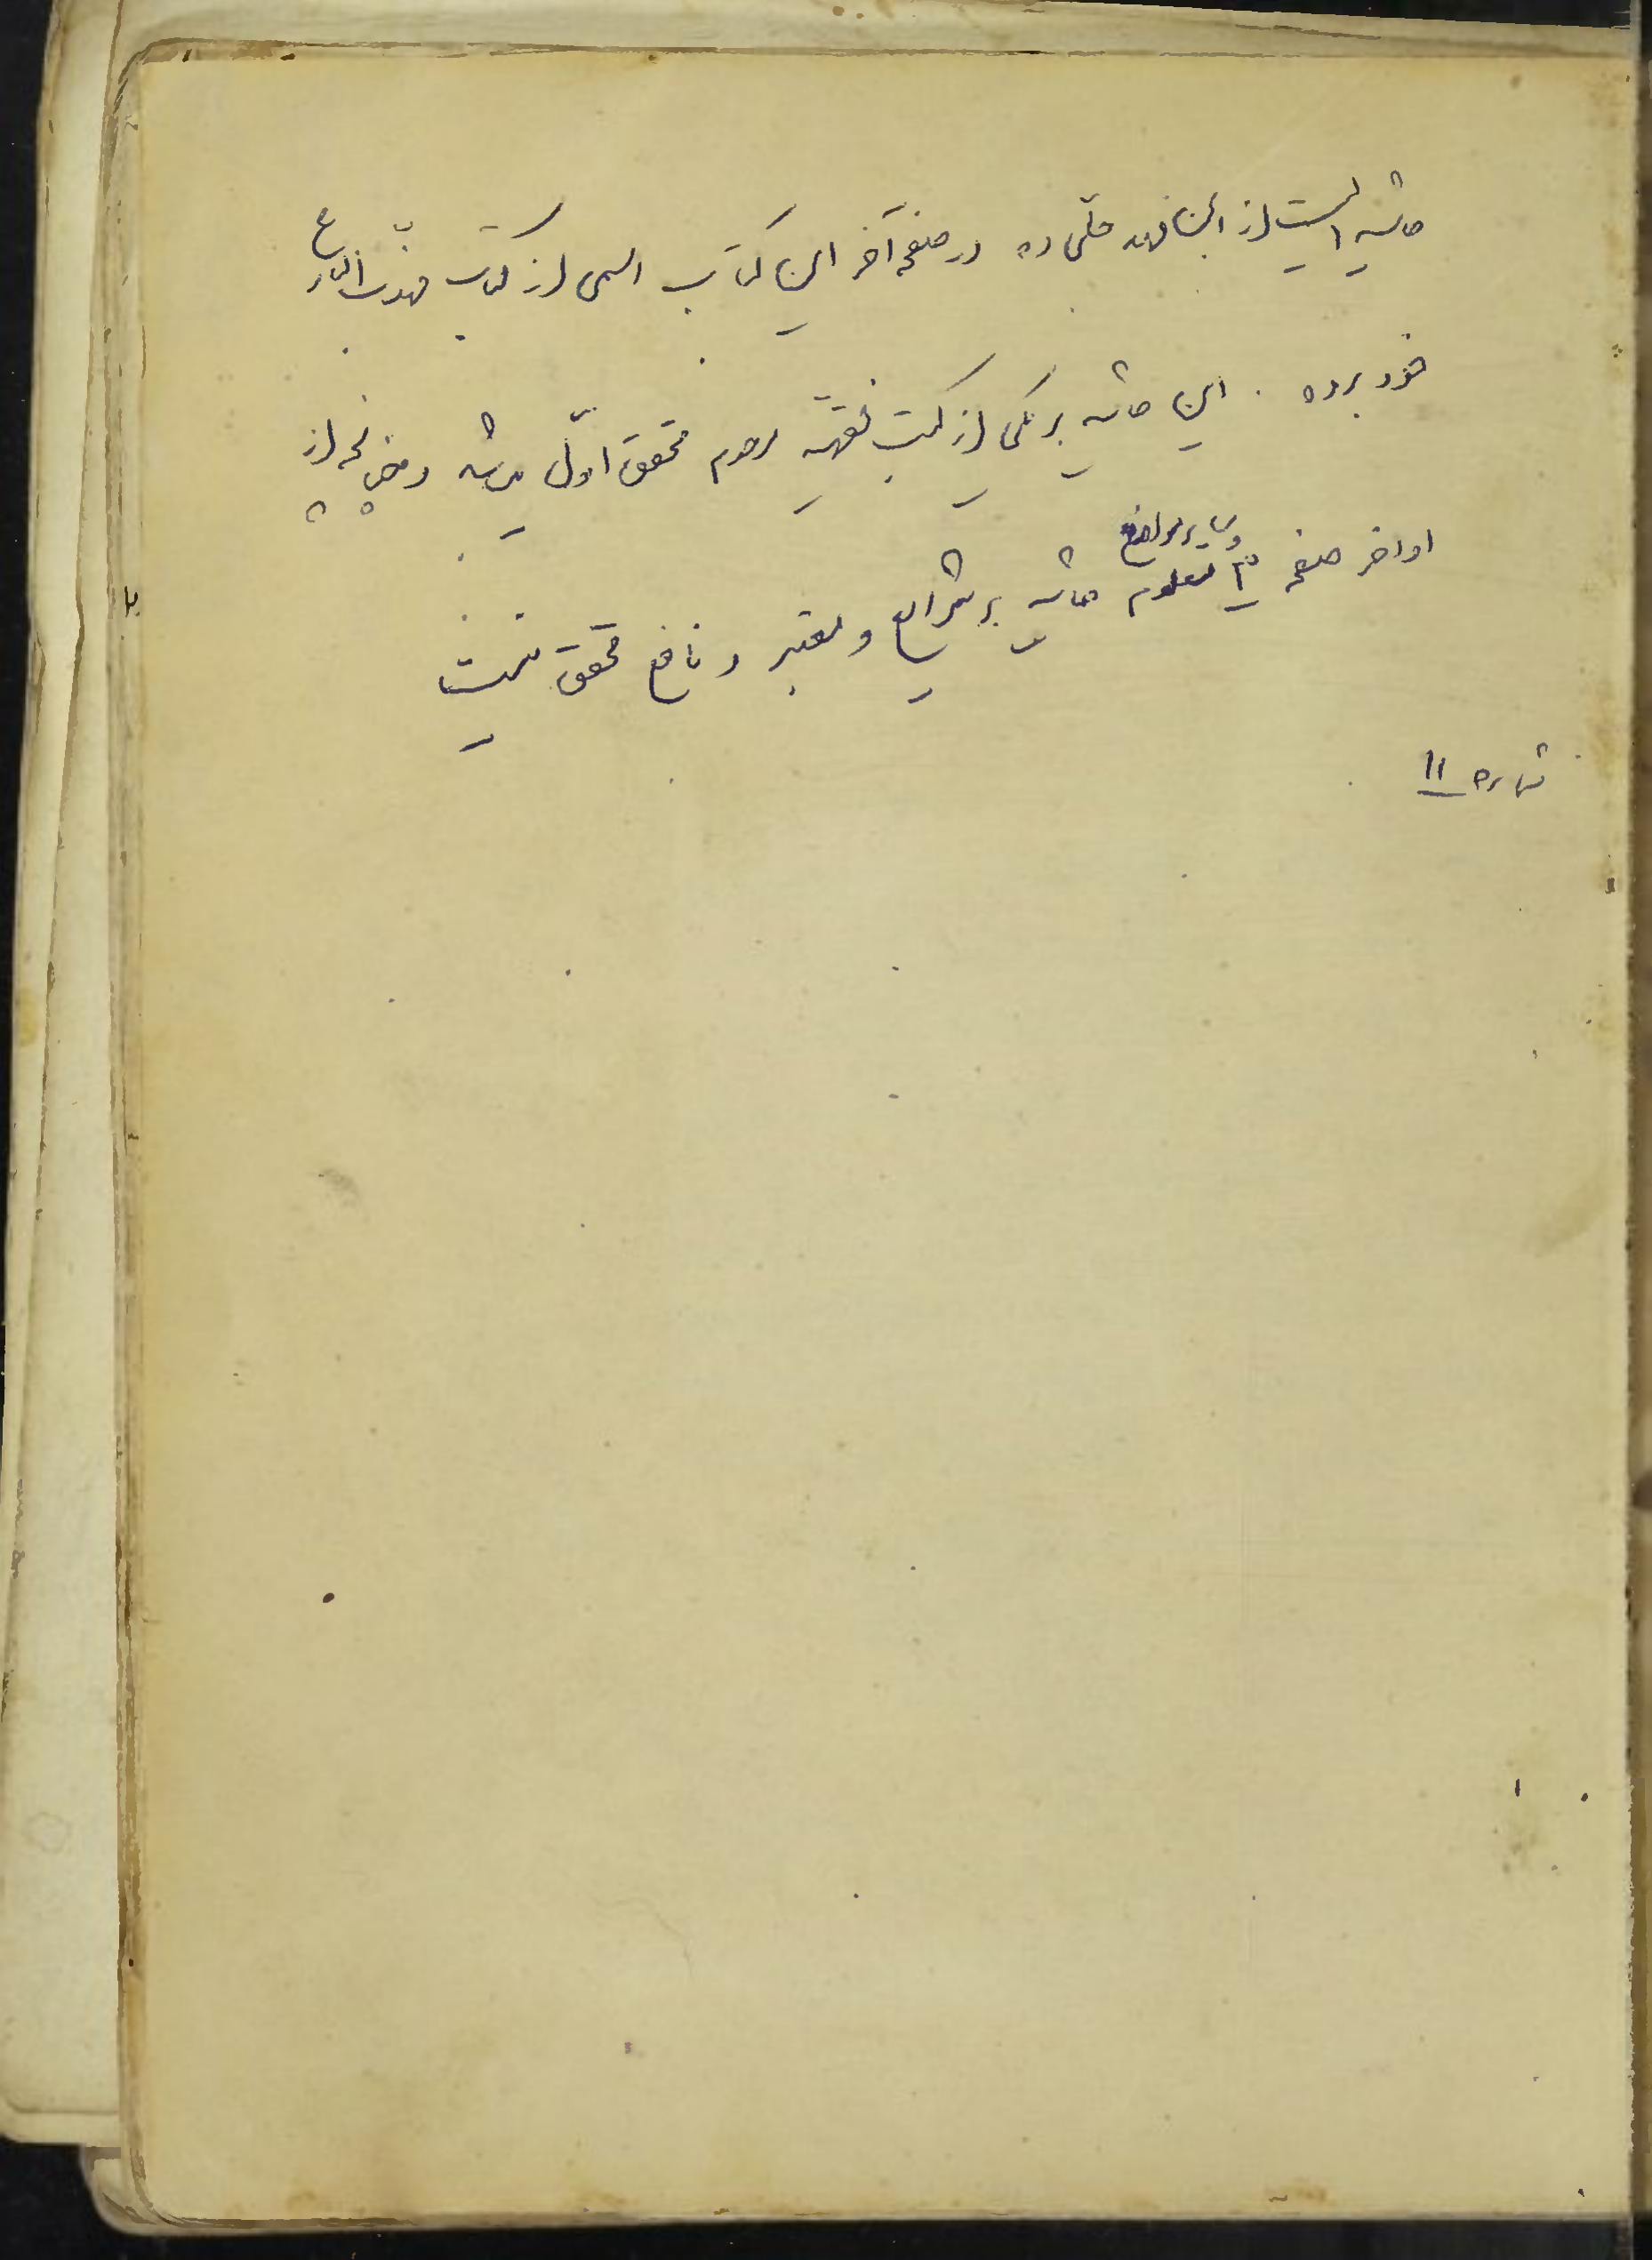 حاشیه ایست از ابن فهد حلی ره در صفحه آخر این کتاب اسمی از کتاب مهذب البارع
خود برده . این حاشیه بر یکی از کتب فقهیه مرحوم محقق اول میباشد و چنانچه از
اواخر صفحه ۳ و سایر مواضع معلوم حاشیه بر شرایع و معتبر و نافع محقق نیست
شماره ۱۱